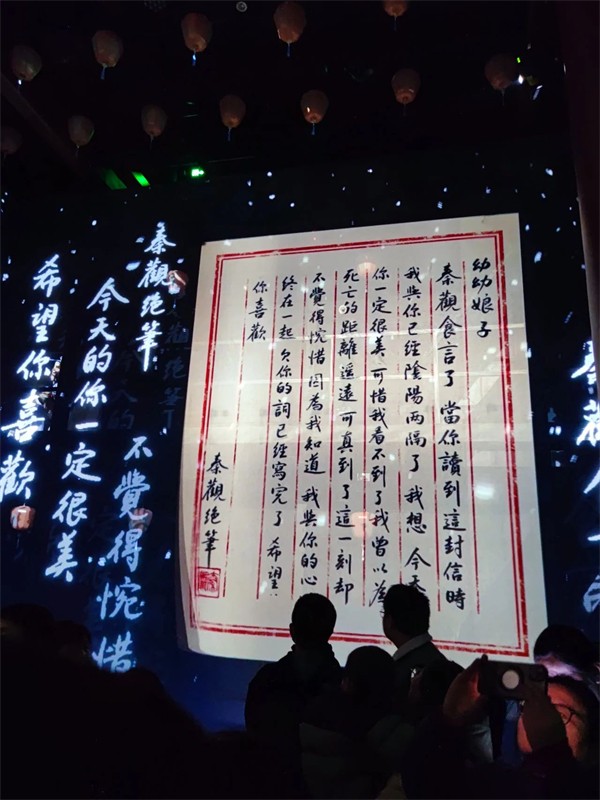 幼幼娘子
秦觀食言了 當你讀到這封信時
我與你已經陰陽兩隔了 我想 今天
你一定很美 可惜我看不到了 我曾以為
死亡的距離遥遠 可真到了這一刻 却
不覺得惋惜 因為我知道 我與你的心
終在一起 欠你的詞已經寫完了 希望
你喜歡
秦觀絕筆
秦觀絕筆
不覺得惋惜
今天的你一定很美
希望你喜歡